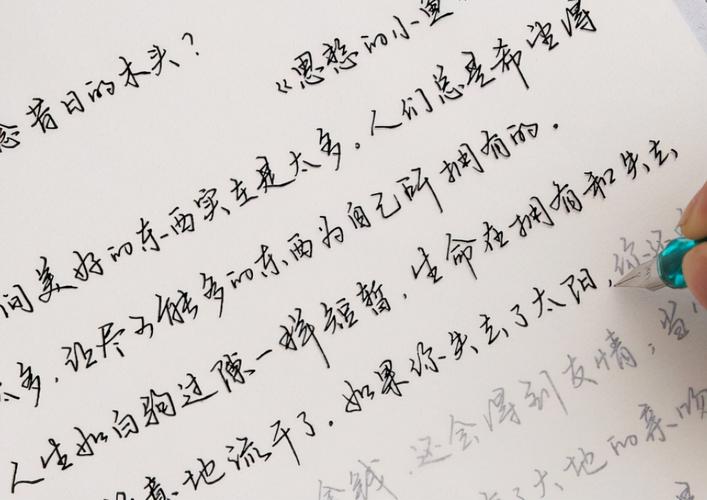 念昔日的木头?
《愚憨的小鱼
间美好的东西实在是太多。人们总是希望得
太多,让尽可能多的东西为自己所拥有的.
人生如白驹过隙一样短暂,生命在拥有和失去
意地流干了。如果你失去了太阳,你还
金钱,还会得到友情;当
了大地的亲吻